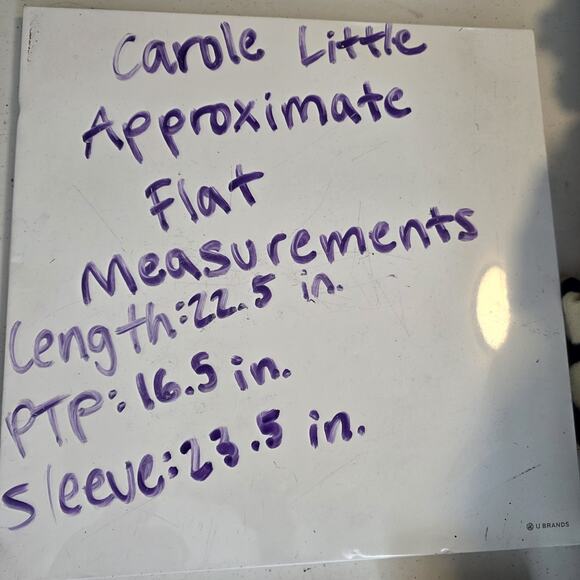 Carole Little
Approximate
Flat
Measurements
Length: 22.5 in.
PTP: 16.5 in.
Sleeve: 23.5 in.
U BRANDS